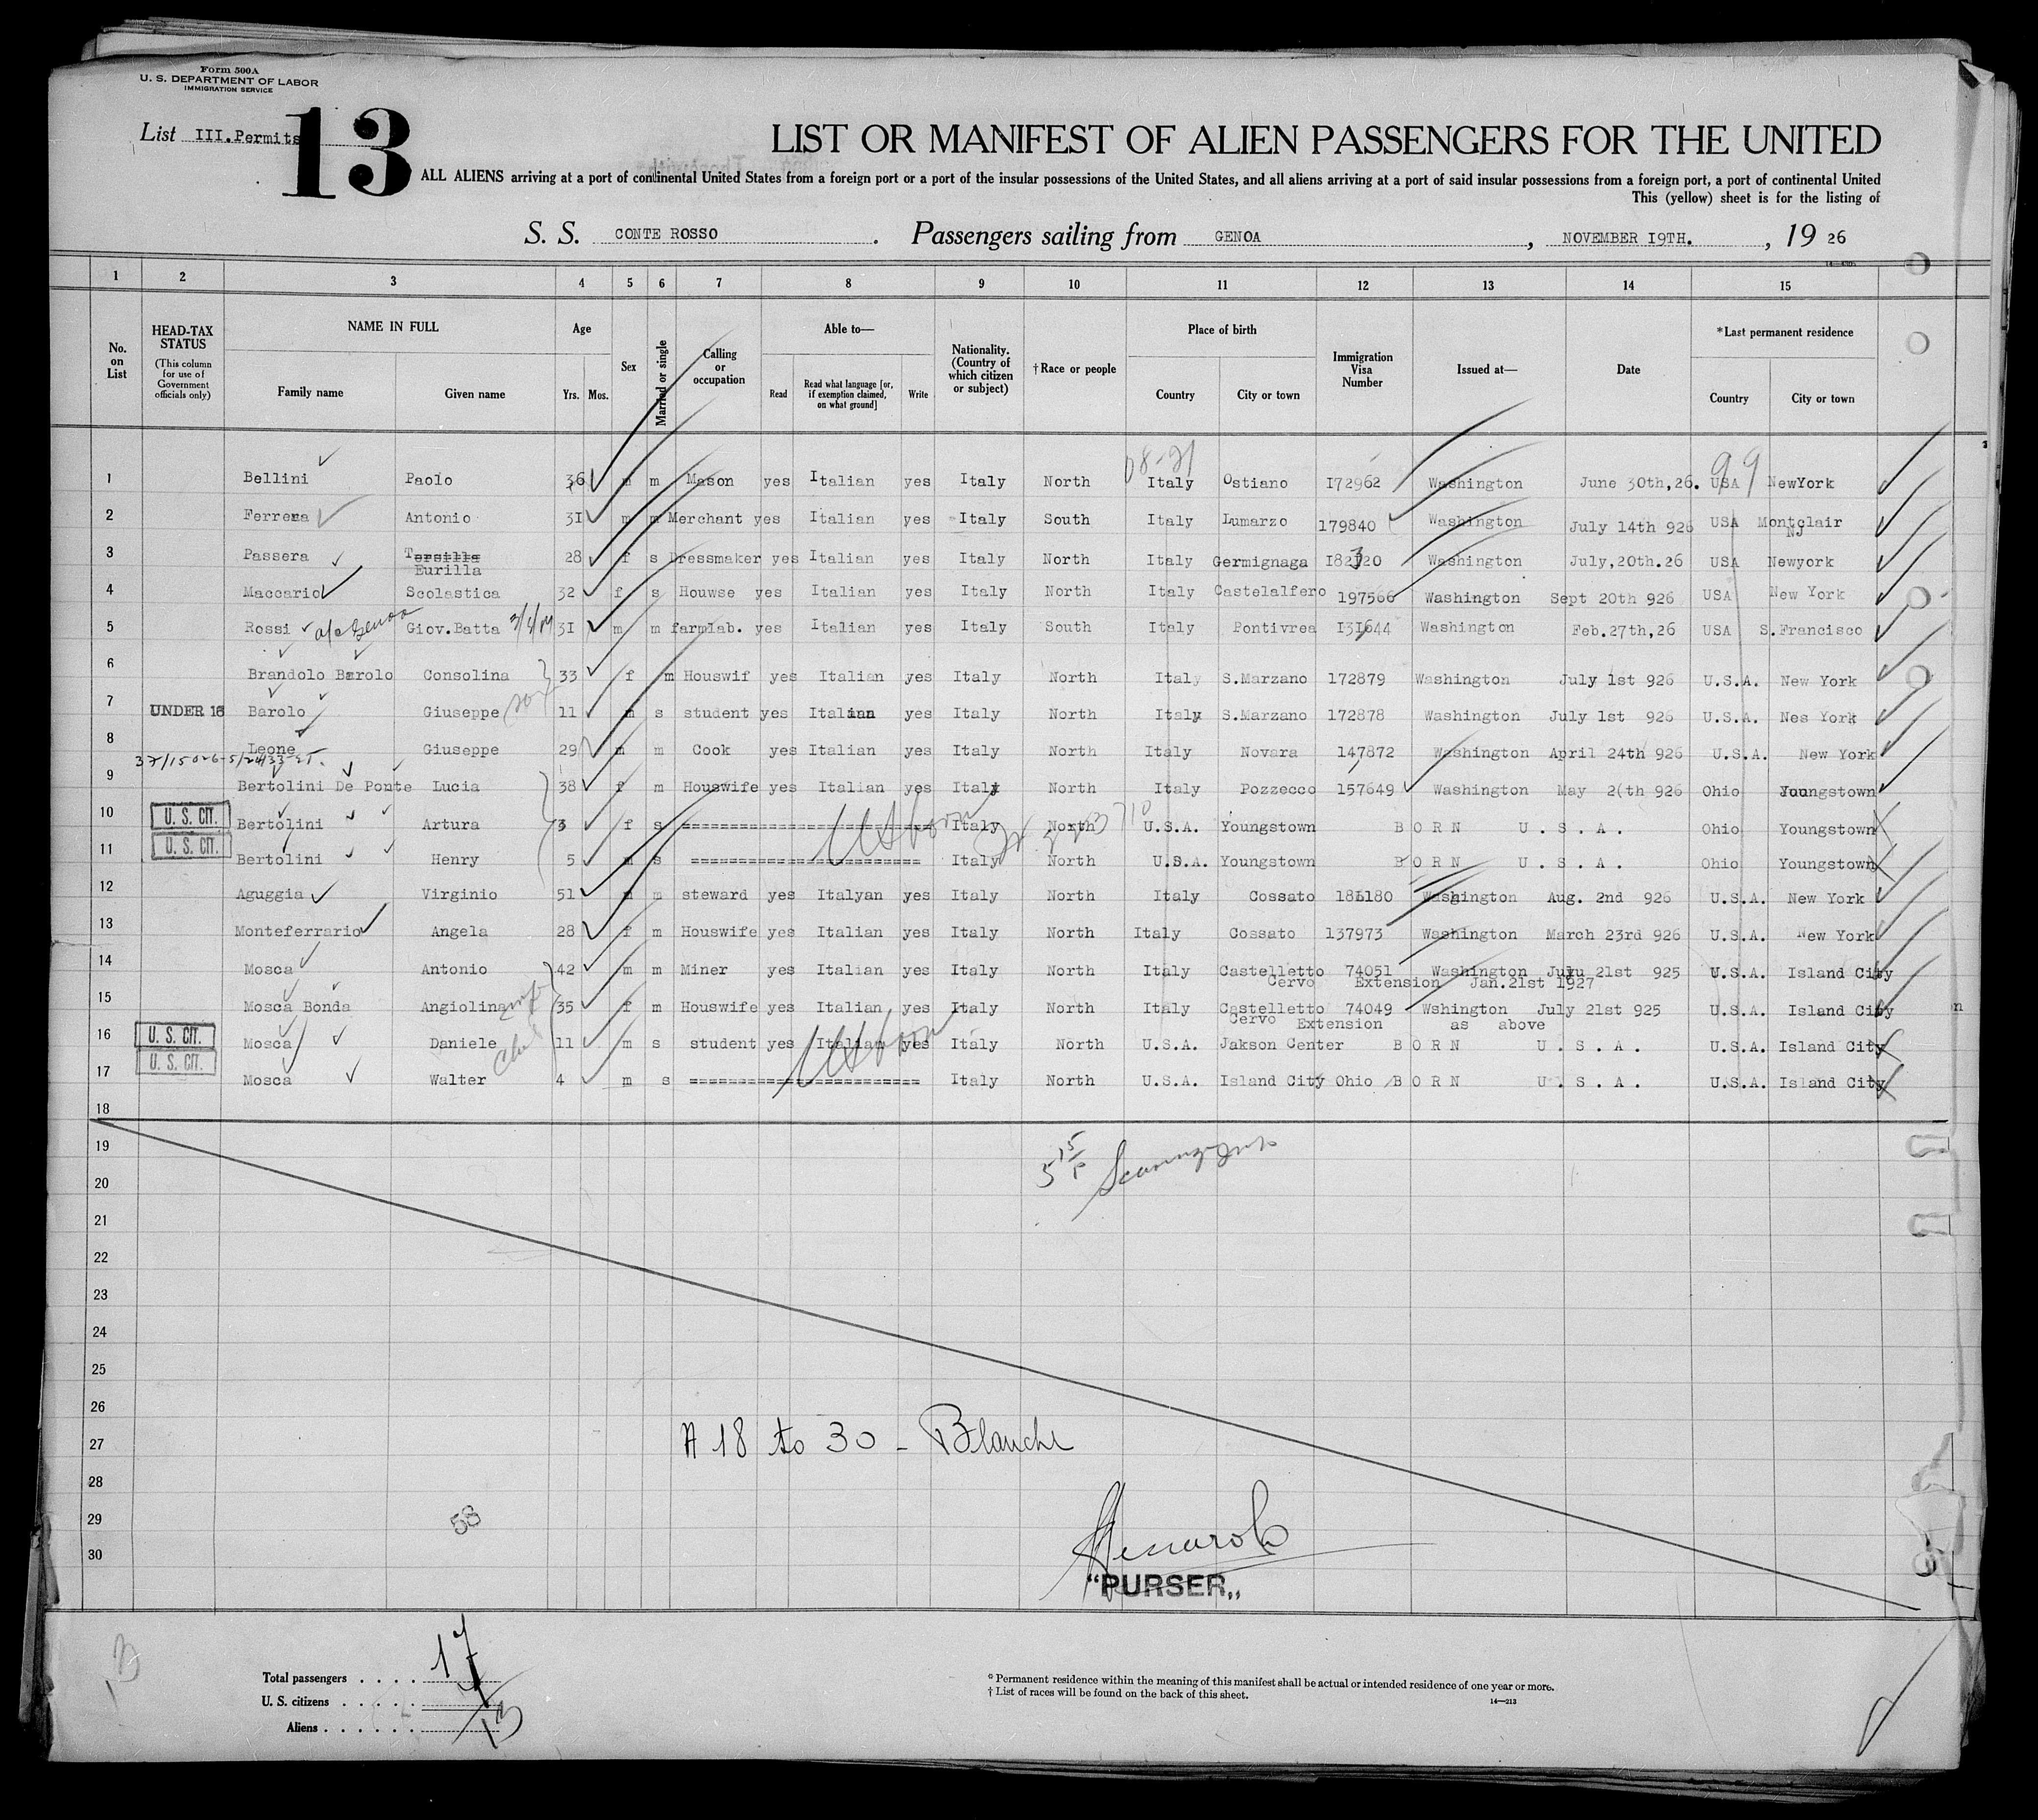 Form 500A
U. S. DEPARTMENT OF LABOR
IMMIGRATION SERVICE
List III.Permits 13
LIST OR MANIFEST OF ALIEN PASSENGERS FOR THE UNITED
ALL ALIENS arriving at a port of continental United States from a foreign port or a port of the insular possessions of the United States, and all aliens arriving at a port of said insular possessions from a foreign port, a port of continental United
This (yellow) sheet is for the listing of
S. S. CONTE ROSSO. Passengers sailing from GENOA, NOVEMBER I9TH., 19 26
1 2 3 4 5 6 7 8 9 10 11 12 13 14 15
No. on List
HEAD-TAX STATUS
(This column for use of Government officials only)
NAME IN FULL
Family name Given name
Age
Yrs. Mos.
Sex
Married or single
Calling or occupation
Able to—
Read
Read what language [or, if exemption claimed, on what ground]
Write
Nationality. (Country of which citizen or subject)
†Race or people
Place of birth
Country City or town
Immigration Visa Number
Issued at—
Date
*Last permanent residence
Country City or town
08-21 99
1 Bellini Paolo 36 m m Mason yes Italian yes Italy North Italy Ostiano I72962 Washington June 30th,26. USA NewYork
2 Ferrera Antonio 3I m m Merchant yes Italian yes Italy South Italy Lumarzo 179840 Washington July 14th 926 USA Montclair NJ
3 Passera Tersilla Eurilla 28 f s Dressmaker yes Italian yes Italy North Italy Germignaga I82320 Washington July,20th.26 USA Newyork
4 Maccario Scolastica 32 f s Houwse yes Italian yes Italy North Italy Castelalfero 197566 Washington Sept 20th 926 USA New York
5 Rossi a/c Genoa Giov.Batta 3I m m farmlab. yes Italian yes Italy South Italy Pontivrea I3I644 Washington Feb.27th,26 USA S.Francisco
6 Brandolo Barolo Consolina 33 f m Houswif yes Italian yes Italy North Italy S.Marzano 172879 Washington July 1st 926 U.S.A. New York
7 UNDER 16 Barolo Giuseppe 11 m s student yes Italian yes Italy North Italy S.Marzano 172878 Washington July 1st 926 U.S.A. Nes York
8 Leone Giuseppe 29 m m Cook yes Italian yes Italy North Italy Novara 147872 Washington April 24th 926 U.S.A. New York
9 Bertolini De Ponte Lucia 38 f m Houswife yes Italian yes Italy North Italy Pozzecco 157649 Washington May 2(th 926 Ohio Youngstown
10 U. S. CIT. Bertolini Artura 3 f s ======================= Italy North U.S.A. Youngstown BORN U.S.A. Ohio Youngstown
US born
11 U. S. CIT. Bertolini Henry 5 m s ======================= Italy North U.S.A. Youngstown BORN U.S.A. Ohio Youngstown
12 Aguggia Virginio 51 m m steward yes Italyan yes Italy North Italy Cossato 181180 Washington Aug. 2nd 926 U.S.A. New York
13 Monteferrario Angela 28 f m Houswife yes Italian yes Italy North Italy Cossato 137973 Washington March 23rd 926 U.S.A. New York
14 Mosca Antonio 42 m m Miner yes Italian yes Italy North Italy Castelletto 74051 Washington July 21st 925 U.S.A. Island City
Cervo Extension Jan.21st 1927
15 Mosca Bonda Angiolina 35 f m Houswife yes Italian yes Italy North Italy Castelletto 74049 Wshington July 21st 925 U.S.A. Island City
Cervo Extension as above
16 U. S. CIT. Mosca Daniele 11 m s student yes Italian yes Italy North U.S.A. Jakson Center BORN U.S.A. U.S.A. Island City
US born
17 U. S. CIT. Mosca Walter 4 m s ======================= Italy North U.S.A. Island City Ohio BORN U.S.A. U.S.A. Island City
18
19
20
21
22
23
24
25
26
27
28
29
30
N 18 to 30 - Blanche
58
"PURSER„
Total passengers . . . . 17
U. S. citizens . . . . .
Aliens . . . . . . 13
13
* Permanent residence within the meaning of this manifest shall be actual or intended residence of one year or more.
† List of races will be found on the back of this sheet.
14—213